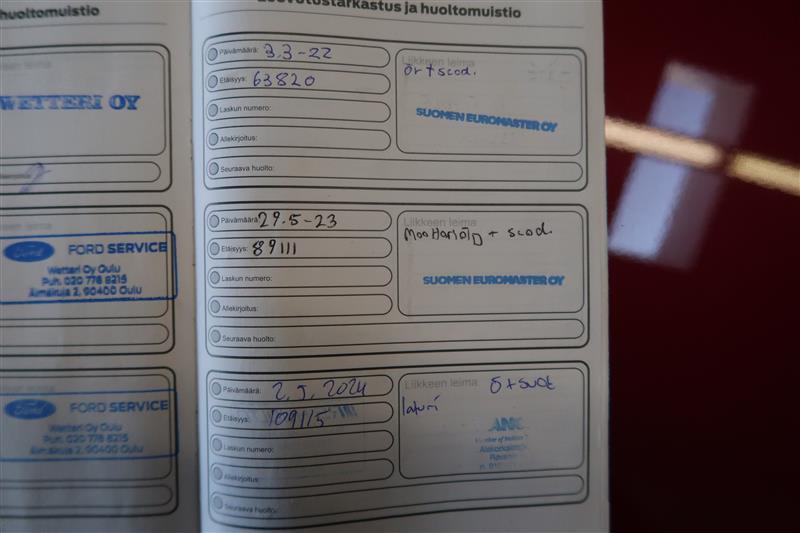 huoltomuistio
WETTERI OY
FORD SERVICE
Wetteri Oy Oulu
Puh. 020 778 8215
Äimäkuja 2, 90400 Oulu
FORD SERVICE
Wetteri Oy Oulu
Puh. 020 778 8215
Äimäkuja 2, 90400 Oulu
Luovutustarkastus ja huoltomuistio
Päivämäärä: 3.3-22
Etäisyys: 63820
Laskun numero:
Allekirjoitus:
Seuraava huolto:
Liikkeen leima
ör + scod.
SUOMEN EUROMASTER OY
Päivämäärä: 29.5-23
Etäisyys: 89111
Laskun numero:
Allekirjoitus:
Seuraava huolto:
Liikkeen leima
+ scod.
SUOMEN EUROMASTER OY
Päivämäärä: 2.5.2024
Etäisyys: 109115
Laskun numero:
Allekirjoitus:
Seuraava huolto:
Liikkeen leima
laturi